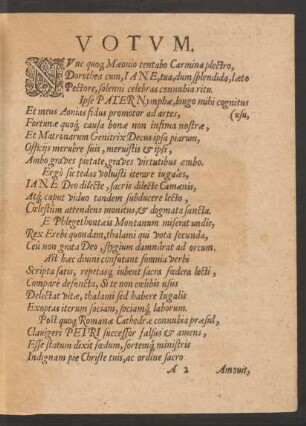 VOTVM.
NVnc quoq; Mæonio tentabo Carmina plectro,
Dorothea cum, IANE, tua, dum splendida, læto
Pectore, solenni celebras connubia ritu.
Ipse PATER Nymphæ, longo mihi cognitus
(usu,
Et meus Aonias fidus promotor ad artes,
Fortunæ quoq; causa bonæ non infima nostræ,
Et Matronarum Genitrix Decus ipsa piarum,
Officijs meruêre suis, meruistis & ipsi,
Ambo graves pietate, graves virtutibus ambo.
Ergò sic tedas voluisti iterare iugales,
IANE Deo dilecte, sacris dilecte Camœnis,
Atq; caput viduo tandem subducere lecto,
Cœlestûm attendens monitus, & dogmata sancta.
E Phlegethontæis Montanum miserat undis,
Rex Erebi quondam, thalami qui vota secunda,
Ceû non grata Deo, stygium damnârat ad orcum.
Ast hæc divini confutant somnia verbi
Scripta satis, repetasq; iubent sacra fœdera lecti,
Compare defuncta, Si te non cœlibis usus
Delectat vitæ, thalami sed habere Iugalis
Exoptas iterum sociam, sociamq; laborum.
Post quoq; Romanæ Cathedræ connubia præsul,
Clavigeri PETRI successor falsus & amens,
Esse statum dixit fœdum, sortemq; ministris
Indignam pie Christe tuis, ac ordine sacro
A 2 Amovit,